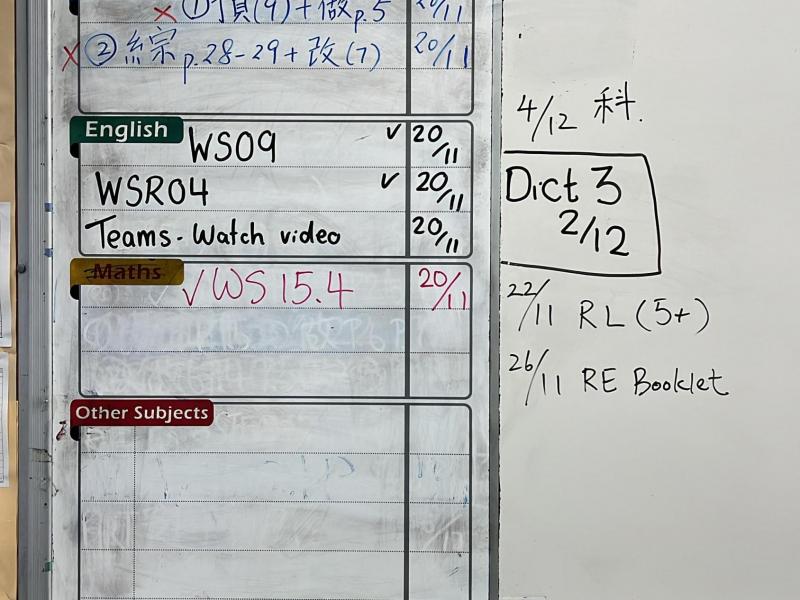 ① (9) + 做 p.5 20/11
② 綜 p.28-29 + 改 (7) 20/11
English
WS09 ✓ 20/11
WSR04 ✓ 20/11
Teams - Watch video 20/11
Maths
✓ WS 15.4 20/11
Other Subjects
4/12 科.
Dict 3
2/12
22/11 RL (5+)
26/11 RE Booklet